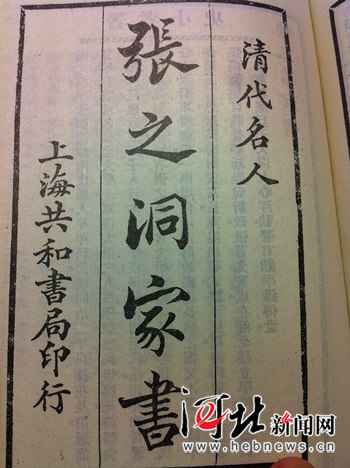 清代名人
張之洞家書
上海共和書局印行
河北新闻网
www.hebnews.cn